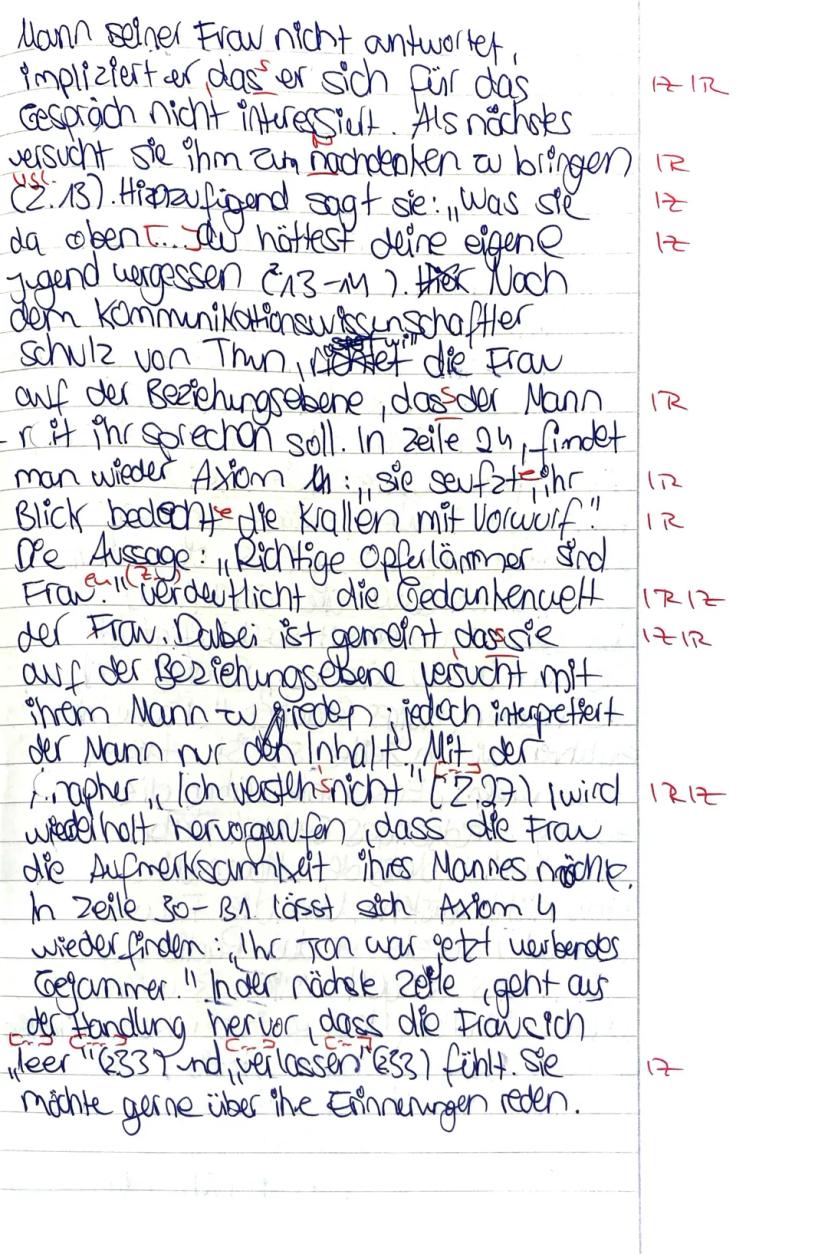 Mann seiner Frau nicht antwortet,
impliziert er, dass er sich für das IZ IR
Gespräch nicht interessiert. Als nächstes
versucht sie ihm zum nachdenken zu bringen IR
vgl.
(Z.13). Hinzufügend sagt sie: „Was sie IZ
da oben [...] du hättest deine eigene IZ
Jugend vergessen (Z13-14). Nach
dem Kommunikationswissenschaftler
Schulz von Thun, will die Frau
auf der Beziehungsebene, dass der Mann IR
mit ihr sprechen soll. In Zeile 24, findet
man wieder Axiom : „sie seufzte, ihr IR
Blick bedachte die Krallen mit Vorwurf." IR
Die Aussage: „Richtige Opferlämmer sind
Frauen." (Z ) verdeutlicht die Gedankenwelt IR IZ
der Frau. Dabei ist gemeint, dass sie IZ IR
auf der Beziehungsebene versucht mit
ihrem Mann zu reden, jedoch interpretiert
der Mann nur den Inhalt. Mit der
„Ich versteh's nicht [---]" (Z.27) wird IR IZ
wiederholt hervorgerufen, dass die Frau
die Aufmerksamkeit ihres Mannes möchte.
In Zeile 30-31 lässt sich Axiom 4
wieder finden: „Ihr Ton war jetzt werbendes
Gejammer." In der nächste Zeile, geht aus
der Handlung hervor, dass die Frau sich
[---] [---] [---] [---]
„leer" (Z33) und „verlassen" (Z33) fühlt. Sie IZ
möchte gerne über ihe Erinnerungen reden.